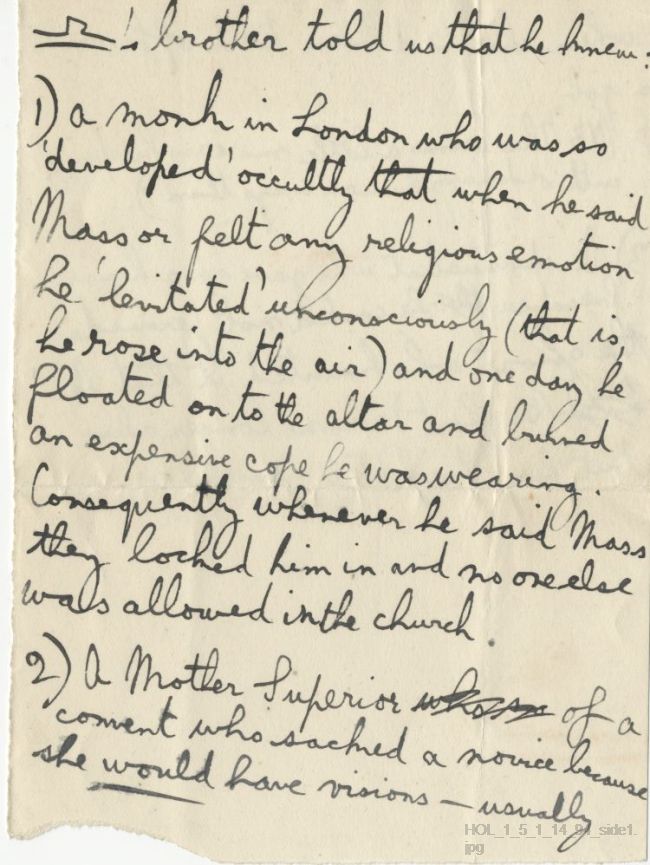 ♎'s brother told us that he knew:
1) a monk in London who was so
'developed' occultly that when he said
Mass or felt any religious emotion
he 'levitated' unconsciously (that is,
he rose into the air) and one day he
floated on to the altar and burned
an expensive cope he was wearing.
Consequently whenever he said Mass
they locked him in and no one else
was allowed in the church.
2) A Mother Superior of a
convent who sacked a novice because
she would have visions – usually
HOL_1_5_1_14_94_side1.
jpg